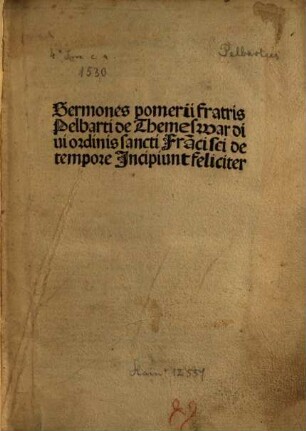 4° Inc. c. a.
1530
Pelbartus
Sermones pomerii fratris
Pelbarti de Themeswar di
ui ordinis sancti Frãcisci de
tempore Incipiunt feliciter
Hain* 12551